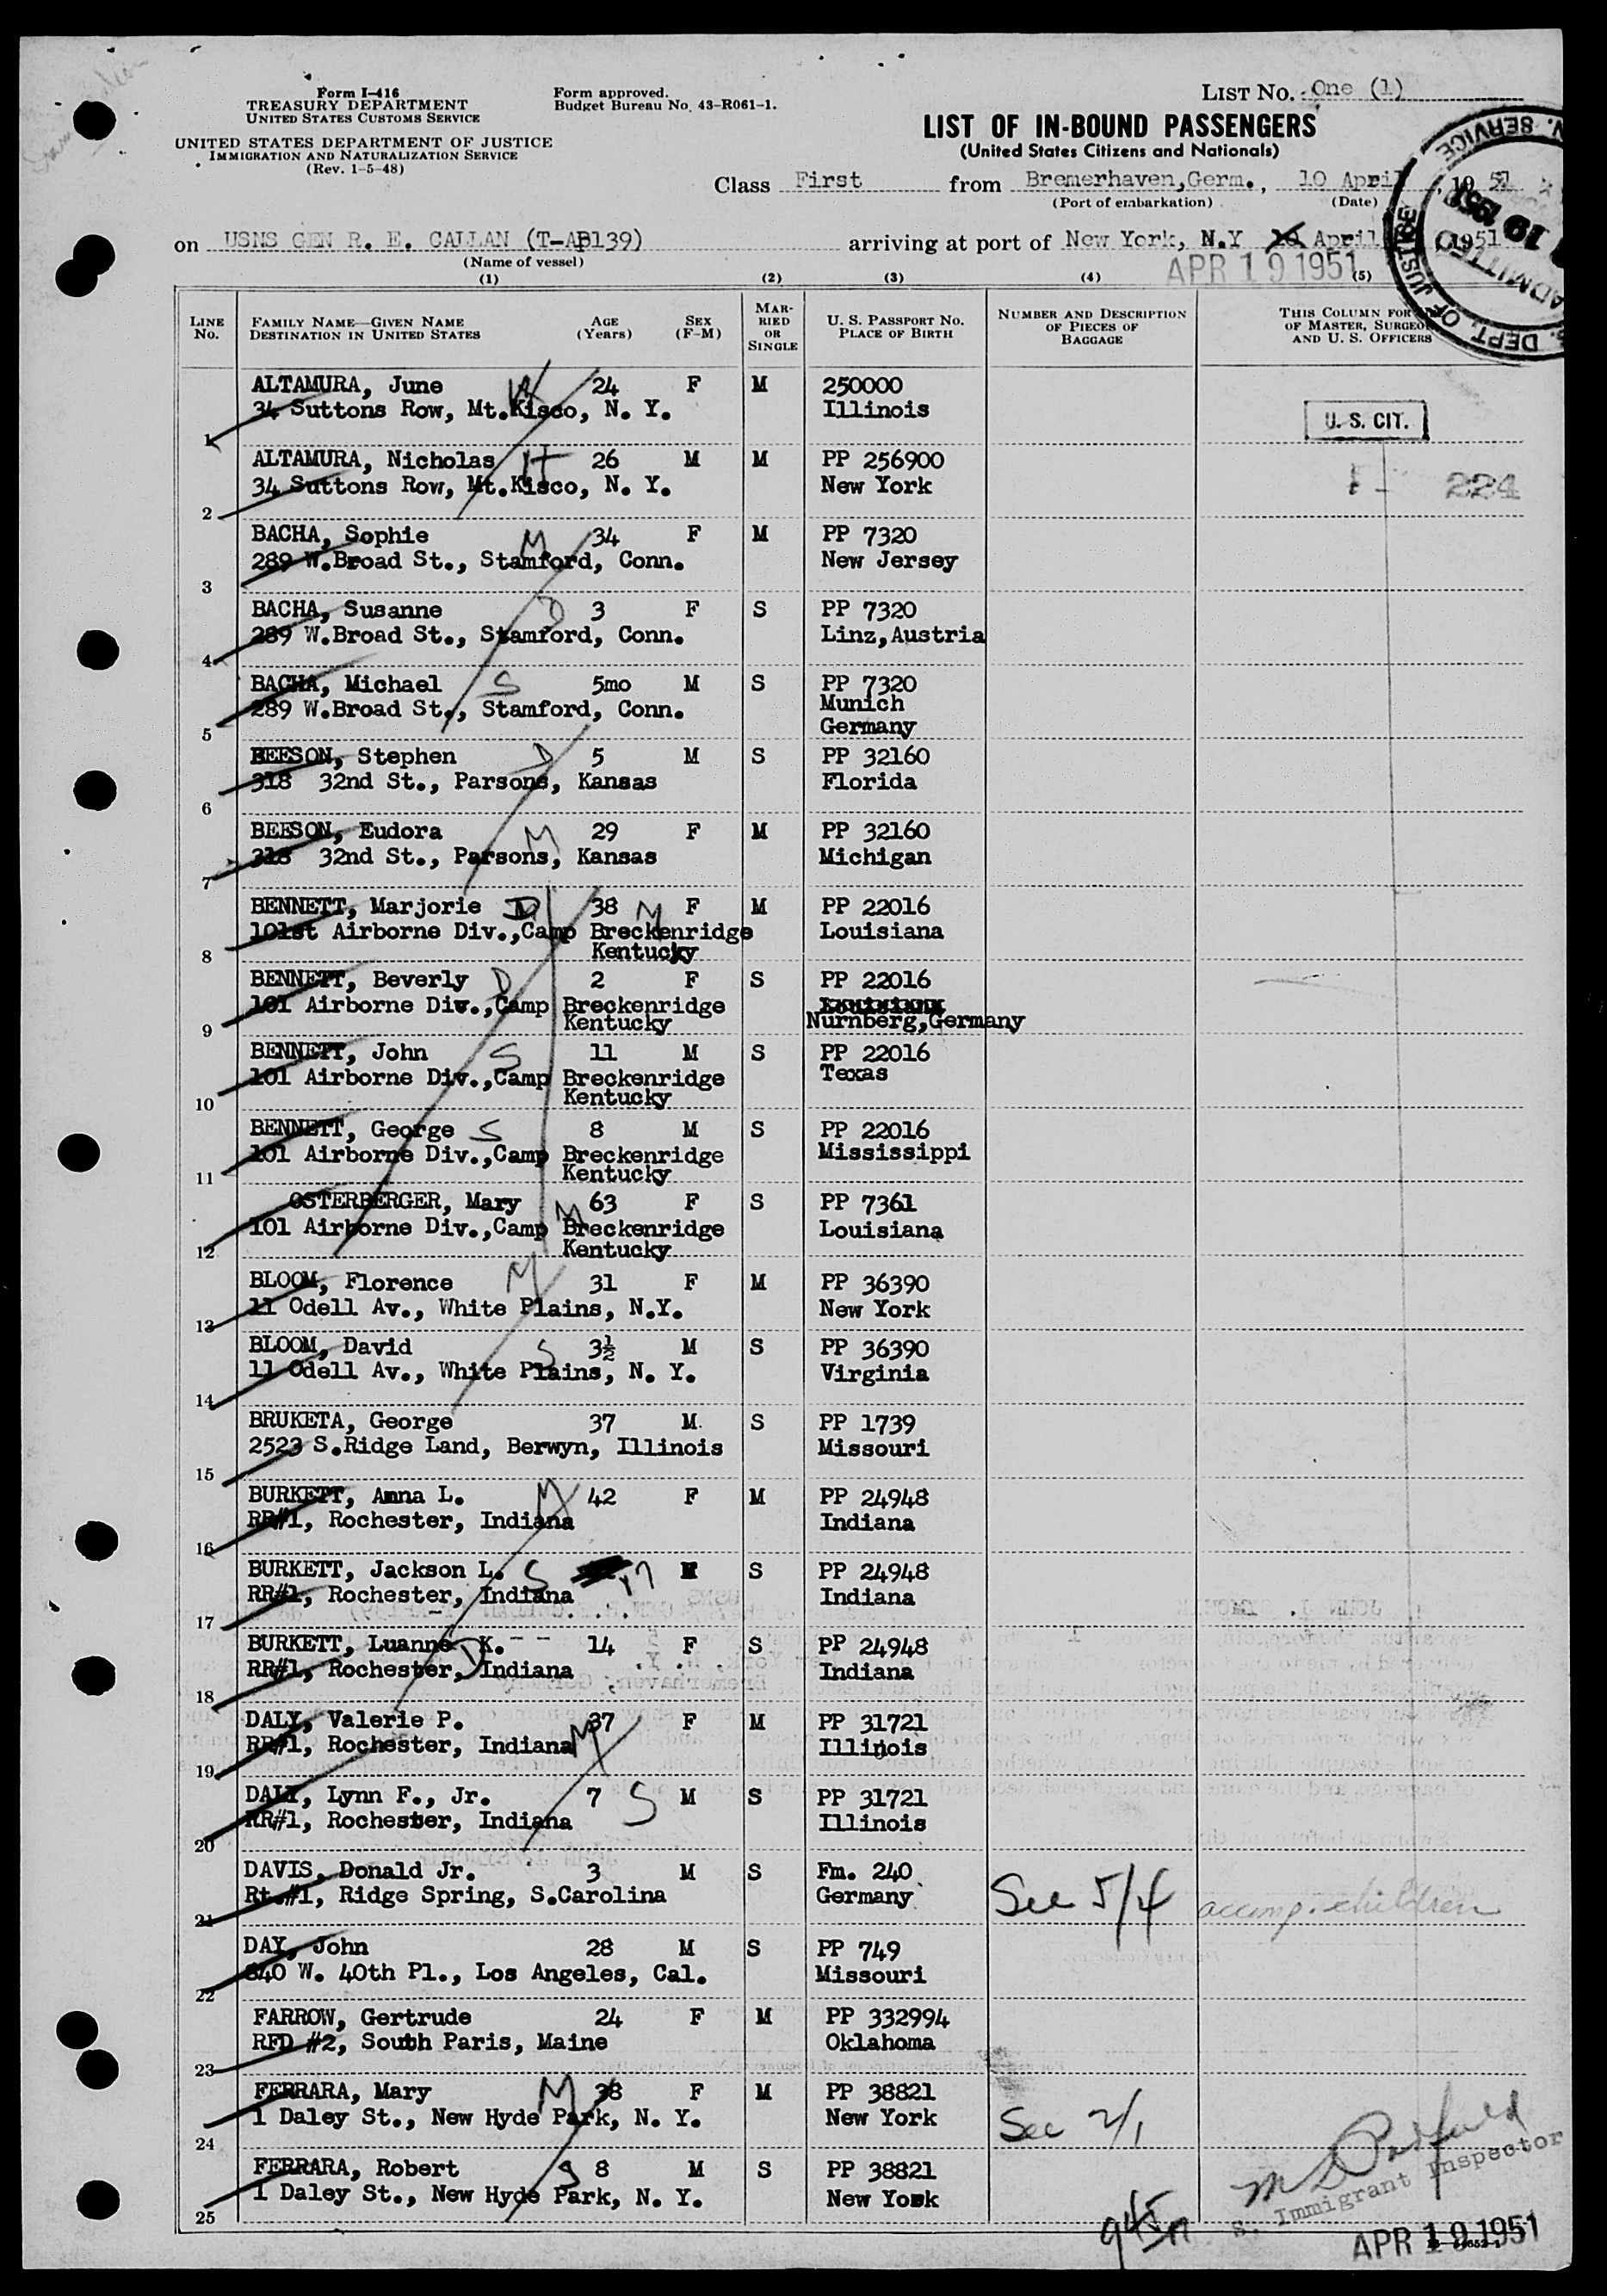 Form I-416
TREASURY DEPARTMENT
UNITED STATES CUSTOMS SERVICE
UNITED STATES DEPARTMENT OF JUSTICE
IMMIGRATION AND NATURALIZATION SERVICE
(Rev. 1-5-48)
Form approved.
Budget Bureau No. 43-R061-1.
LIST NO. One (1)
LIST OF IN-BOUND PASSENGERS
(United States Citizens and Nationals)
Class First from Bremerhaven,Germ., 10 April, 1951
(Port of embarkation) (Date)
on USNS GEN R. E. CALLAN (T-AP139) arriving at port of New York, N.Y April, 1951
(Name of vessel)
APR 19 1951
(1) (2) (3) (4) (5)
LINE NO. FAMILY NAME—GIVEN NAME DESTINATION IN UNITED STATES AGE (Years) SEX (F-M) MARRIED OR SINGLE U. S. PASSPORT NO. PLACE OF BIRTH NUMBER AND DESCRIPTION OF PIECES OF BAGGAGE THIS COLUMN FOR OF MASTER, SURGEON AND U. S. OFFICERS
DEPT. OF JUSTICE
N. SERVICE
ADMITTED
ALTAMURA, June W 24 F M 250000
34 Suttons Row, Mt.Kisco, N. Y. Illinois
1
U. S. CIT.
ALTAMURA, Nicholas H 26 M M PP 256900
34 Suttons Row, Mt.Kisco, N. Y. New York
2
224
BACHA, Sophie M 34 F M PP 7320
289 W.Broad St., Stamford, Conn. New Jersey
3
BACHA, Susanne D 3 F S PP 7320
289 W.Broad St., Stamford, Conn. Linz,Austria
4
BACHA, Michael S 5mo M S PP 7320
289 W.Broad St., Stamford, Conn. Munich
Germany
5
BEESON, Stephen D 5 M S PP 32160
318 32nd St., Parsons, Kansas Florida
6
BEESON, Eudora M 29 F M PP 32160
318 32nd St., Parsons, Kansas Michigan
7
BENNETT, Marjorie D 38 M F M PP 22016
101st Airborne Div.,Camp Breckenridge Louisiana
Kentucky
8
BENNETT, Beverly D 2 F S PP 22016
101 Airborne Div.,Camp Breckenridge Louisiana
Kentucky Nurnberg,Germany
9
BENNETT, John S 11 M S PP 22016
101 Airborne Div.,Camp Breckenridge Texas
Kentucky
10
BENNETT, George S 8 M S PP 22016
101 Airborne Div.,Camp Breckenridge Mississippi
Kentucky
11
OSTERBERGER, Mary M 63 F S PP 7361
101 Airborne Div.,Camp Breckenridge Louisiana
Kentucky
12
BLOOM, Florence M 31 F M PP 36390
11 Odell Av., White Plains, N.Y. New York
13
BLOOM, David S 3½ M S PP 36390
11 Odell Av., White Plains, N. Y. Virginia
14
BRUKETA, George 37 M. S PP 1739
2523 S.Ridge Land, Berwyn, Illinois Missouri
15
BURKETT, Anna L. M 42 F M PP 24948
RR#1, Rochester, Indiana Indiana
16
BURKETT, Jackson L. S 17 M S PP 24948
RR#1, Rochester, Indiana Indiana
17
BURKETT, Luanne K. D 14 F S PP 24948
RR#1, Rochester, Indiana Indiana
18
DALY, Valerie P. M 37 F M PP 31721
RR#1, Rochester, Indiana Illinois
19
DALY, Lynn F., Jr. 7 S M S PP 31721
RR#1, Rochester, Indiana Illinois
20
DAVIS, Donald Jr. 3 M S Fm. 240
Rt.#1, Ridge Spring, S.Carolina Germany See 5/4 accomp. children
21
DAY, John 28 M S PP 749
840 W. 40th Pl., Los Angeles, Cal. Missouri
22
FARROW, Gertrude 24 F M PP 332994
RFD #2, South Paris, Maine Oklahoma
23
FERRARA, Mary M 38 F M PP 38821
1 Daley St., New Hyde Park, N. Y. New York See 2/1
24
FERRARA, Robert S 8 M S PP 38821
1 Daley St., New Hyde Park, N. Y. New York
25
S. Immigrant Inspector
APR 19 1951